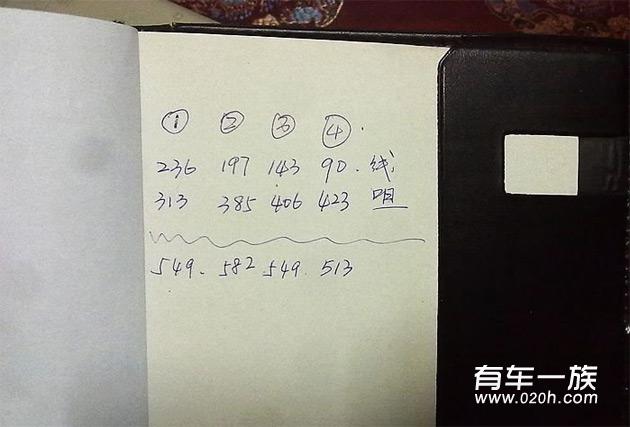 ① ② ③ ④.
236 197 143 90. 线
313 385 406 423 咀
549. 582 549. 513
有车一族
www.020h.com